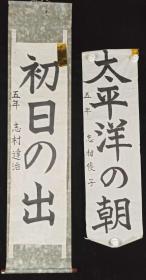 太平洋の朝
五年 子
初日の出
五年 志村達治